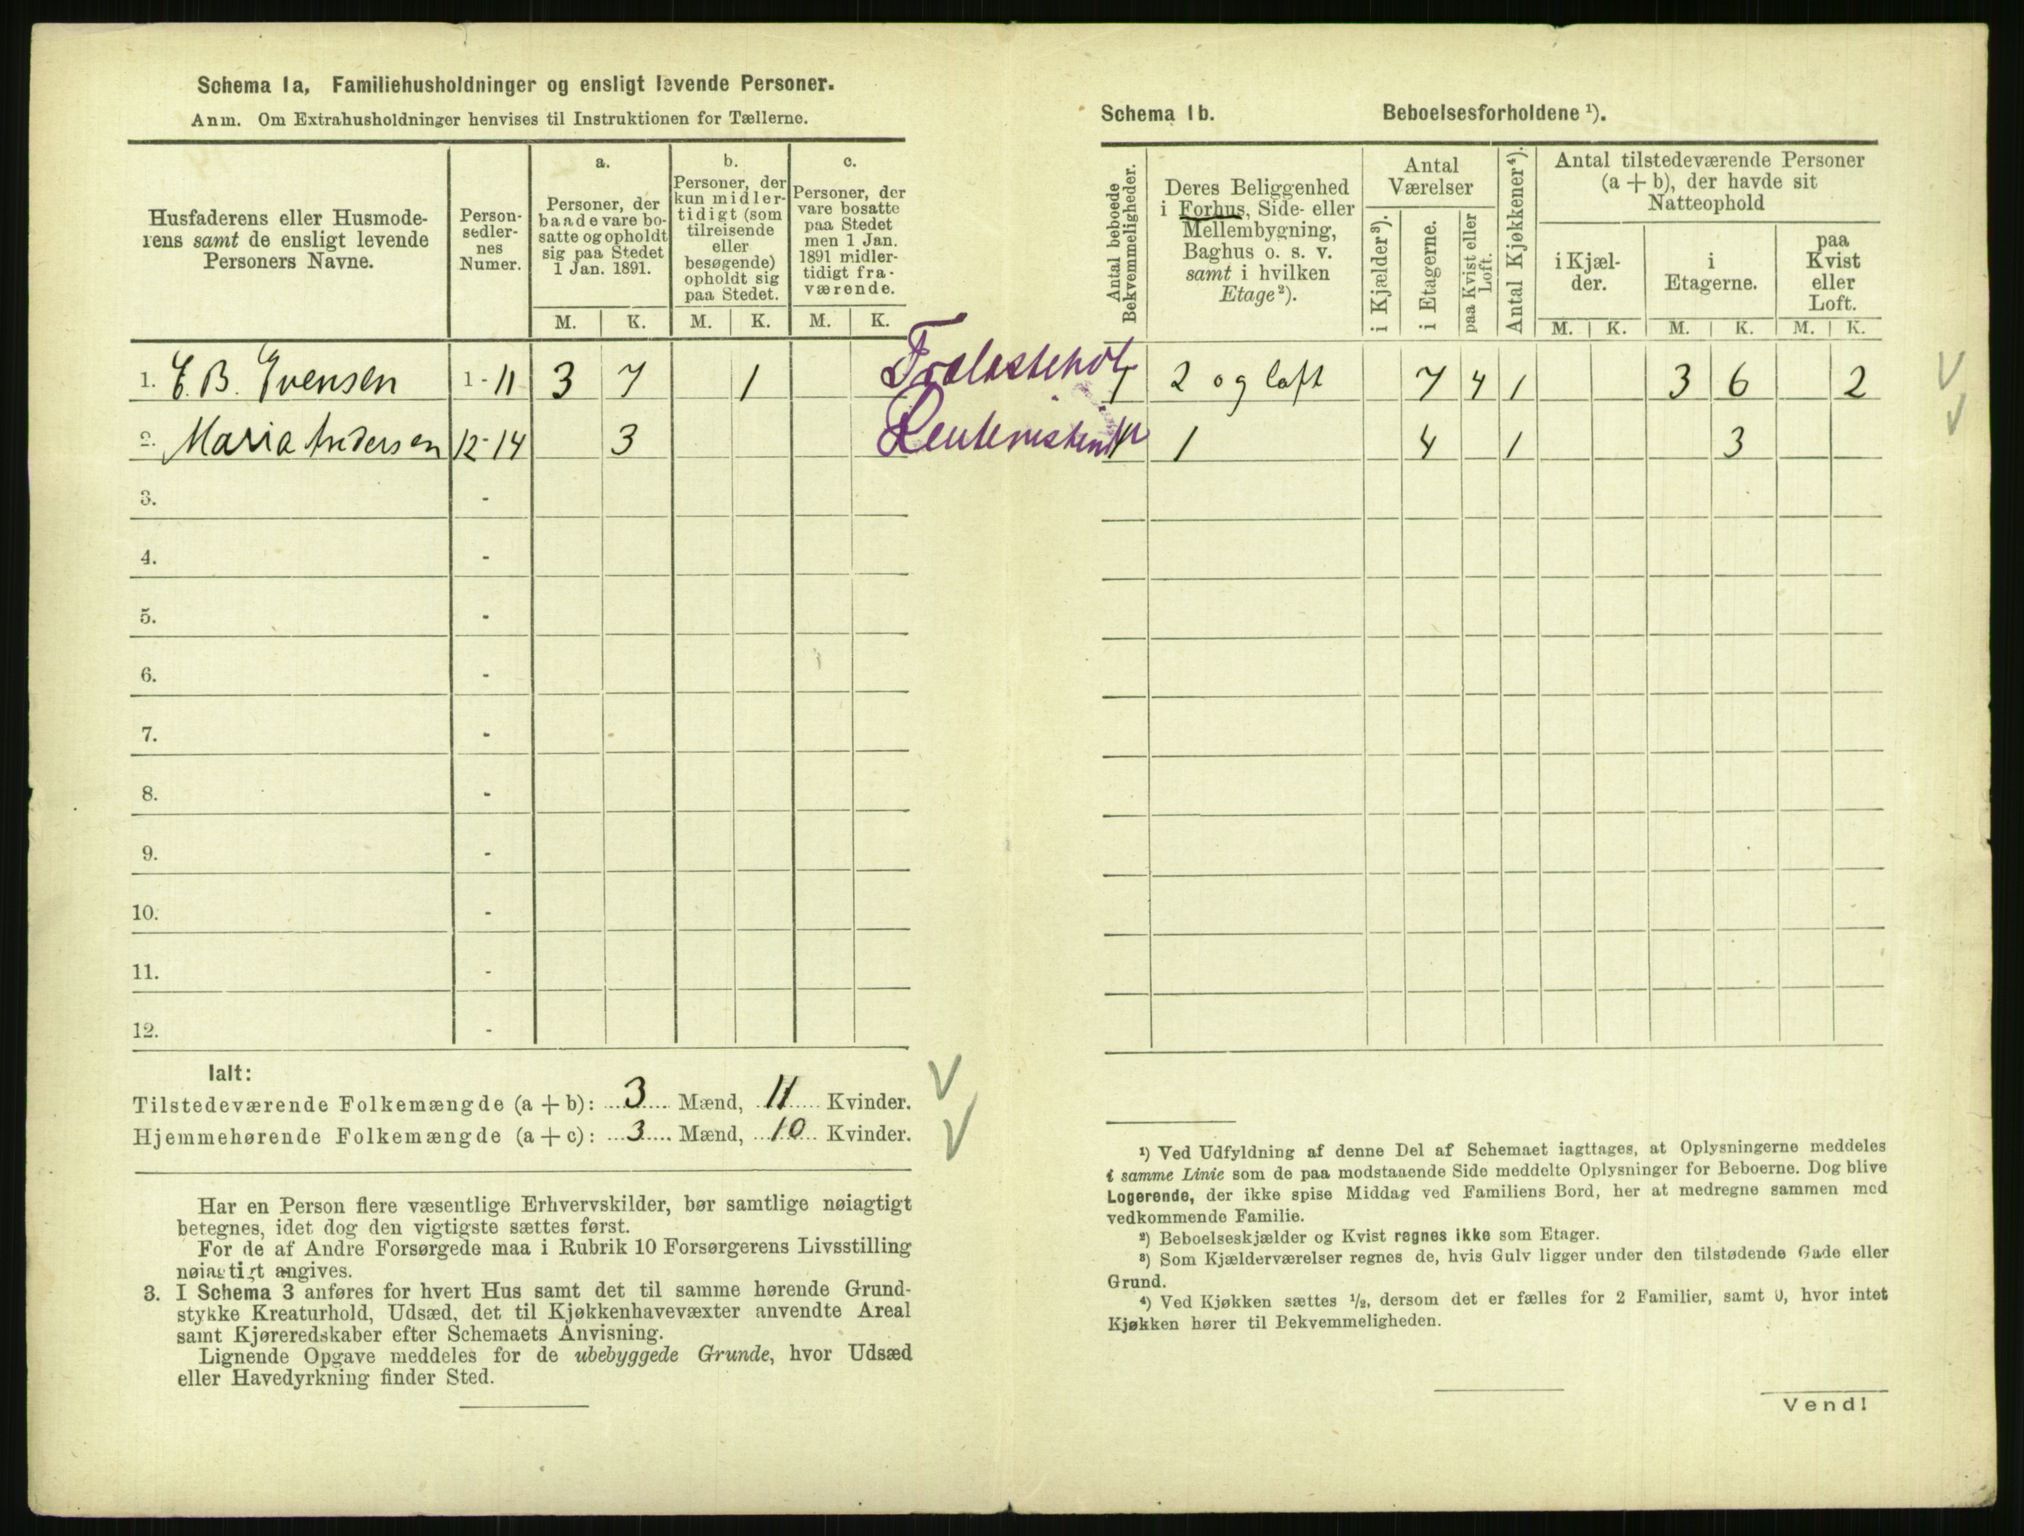 Schema 1a, Familiehusholdninger og ensligt levende Personer.
Anm. Om Extrahusholdninger henvises til Instruktionen for Tællerne.
Husfaderens eller Husmode-
rens samt de ensligt levende
Personers Navne.
Person-
sedler-
nes
Numer.
a.
Personer, der
baade vare bo-
satte og opholdt
sig paa Stedet
1 Jan. 1891.
b.
Personer, der
kun midler-
tidigt (som
tilreisende
eller
besøgende)
opholdt sig
paa Stedet.
c.
Personer, der
vare bosatte
paa Stedet
men 1 Jan.
1891 midler-
tidigt fra-
værende.
M. K. M. K. M. K.
1. E. B. Evensen 1-11 3 7 1
2. Maria Andersen 12-14 3
3. -
4. -
5. -
6. -
7. -
8. -
9. -
10. -
11. -
12. -
Ialt:
Tilstedeværende Folkemængde (a + b): 3 Mænd, 11 Kvinder.
Hjemmehørende Folkemængde (a + c): 3 Mænd, 10 Kvinder.
Har en Person flere væsentlige Erhvervskilder, bør samtlige nøiagtigt
betegnes, idet dog den vigtigste sættes først.
For de af Andre Forsørgede maa i Rubrik 10 Forsørgerens Livsstilling
nøiagtigt angives.
3. I Schema 3 anføres for hvert Hus samt det til samme hørende Grund-
stykke Kreaturhold, Udsæd, det til Kjøkkenhavevæxter anvendte Areal
samt Kjøreredskaber efter Schemaets Anvisning.
Lignende Opgave meddeles for de ubebyggede Grunde, hvor Udsæd
eller Havedyrkning finder Sted.
Schema 1b. Beboelsesforholdene ¹).
Antal beboede
Bekvemmeligheder.
Deres Beliggenhed
i Forhus, Side- eller
Mellembygning,
Baghus o. s. v.
samt i hvilken
Etage²).
Antal
Værelser
i Kjælder³).
i Etagerne.
paa Kvist eller
Loft.
Antal Kjøkkener⁴).
Antal tilstedeværende Personer
(a + b), der havde sit
Natteophold
i Kjæl-
der.
i
Etagerne.
paa
Kvist
eller
Loft.
M. K. M. K. M. K.
1 2 og loft 7 4 1 3 6 2
1 4 1 3
¹) Ved Udfyldning af denne Del af Schemaet iagttages, at Oplysningerne meddeles
i samme Linie som de paa modstaaende Side meddelte Oplysninger for Beboerne. Dog blive
Logerende, der ikke spise Middag ved Familiens Bord, her at medregne sammen med
vedkommende Familie.
²) Beboelseskjælder og Kvist regnes ikke som Etager.
³) Som Kjælderværelser regnes de, hvis Gulv ligger under den tilstødende Gade eller
Grund.
⁴) Ved Kjøkken sættes ¹/₂, dersom det er fælles for 2 Familier, samt 0, hvor intet
Kjøkken hører til Bekvemmeligheden.
Vend!